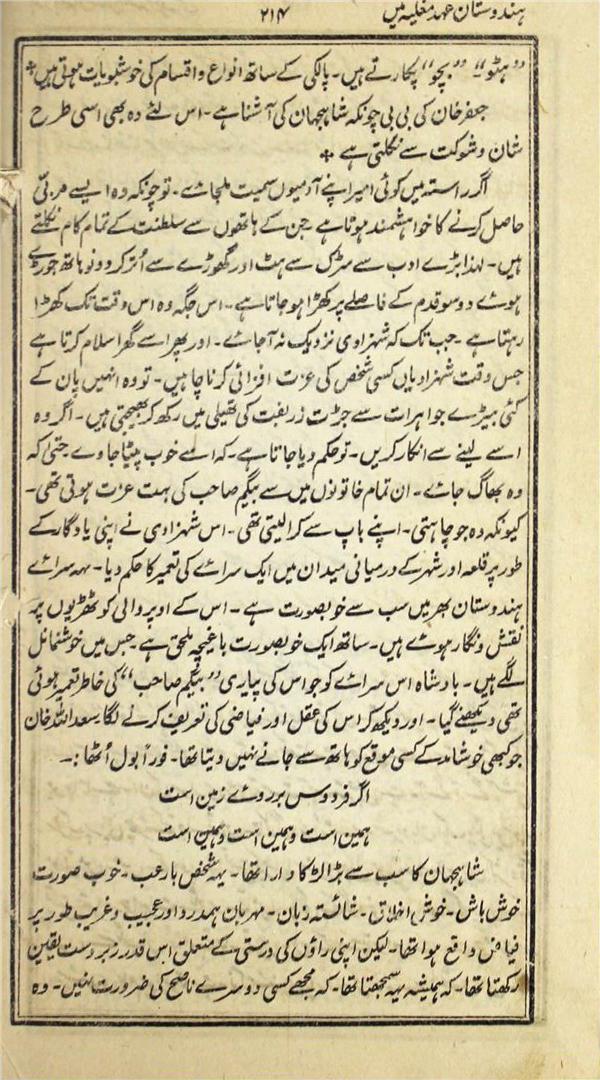 ہندوستان عہد مغلیہ میں ۲۱۴
"ہٹو" "بچو" پکارتے ہیں۔ پالکی کے ساتھ انواع واقسام کی خوشبویات ہوتی ہیں *
جعفر خان کی بی بی چونکہ شاہجہان کی آشنا ہے۔ اس لئے وہ بھی اسی طرح
شان وشوکت سے نکلتی ہے *
اگر راستہ میں کوئی امیر اپنے آدمیوں سمیت ملجاے۔ تو چونکہ وہ ایسے مربی
حاصل کرنے کا خواہشمند ہوتا ہے جن کے ہاتھوں سے سلطنت کے تمام کام نکلتے
ہیں۔ لہذا بڑے ادب سے سڑک سے ہٹ اور گھوڑے سے اُتر کر دونو ہاتھ جوڑے
ہوے دو سو قدم کے فاصلے پر کھڑا ہو جاتا ہے۔ اس جگہ وہ اس وقت تک کھڑا
رہتا ہے۔ جب تک کہ شہزادی نزدیک نہ آجاے۔ اور پھر اسے گہرا سلام کرتا ہے
جس وقت شہزادیاں کسی شخص کی عزت افزائی کرنا چاہیں۔ تو وہ انہیں پان کے
کئی بیڑے جواہرات سے جڑت زربفت کی تھیلی میں رکھ کر بھیجتی ہیں۔ اگر وہ
اسے لینے سے انکار کریں۔ تو حکم دیا جاتا ہے۔ کہ اسے خوب پیٹا جاوے حتیٰ کہ
وہ بھاگ جاے۔ ان تمام خاتونوں میں سے بیگم صاحب کی بہت عزت ہوتی تھی۔
کیونکہ وہ جو چاہتی۔ اپنے باپ سے کرا لیتی تھی۔ اس شہزادی نے اپنی یادگار کے
طور پر قلعہ اور شہر کے درمیانی میدان میں ایک سراے کی تعمیر کا حکم دیا۔ یہہ سراے
ہندوستان بھر میں سب سے خوبصورت ہے۔ اس کے اوپر والی کوٹھڑیوں پر
نقش ونگار ہوے ہیں۔ ساتھ ایک خوبصورت باغیچہ ملحق ہے جس میں خوشنما نل
لگے ہیں۔ بادشاہ اس سراے کو جو اس کی پیاری "بیگم صاحب" کی خاطر تعمیر ہوئی
تھی دیکھنے گیا۔ اور دیکھ کر اس کی عقل اور فیاضی کی تعریف کرنے لگا۔ سعد اللہ خان
جو کبھی خوشامد کے کسی موقع کو ہاتھ سے جانے نہیں دیتا تھا۔ فوراً بول اُٹھا :۔
اگر فردوس بر روے زمین است
ہمین است و ہمین است و ہمین است
شاہجہان کا سب سے بڑا لڑکا دارا تھا۔ یہہ شخص بارعب۔ خوب صورت
خوش باش۔ خوش اخلاق۔ شائستہ زبان۔ مہربان ہمدرد اور عجیب وغریب طور پر
فیاض واقع ہوا تھا۔ لیکن اپنی راؤں کی درستی کے متعلق اس قدر زبردست یقین
رکھتا تھا۔ کہ ہمیشہ یہہ سمجھتا تھا۔ کہ مجھے کسی دوسرے ناصح کی ضرورت نہیں۔ وہ